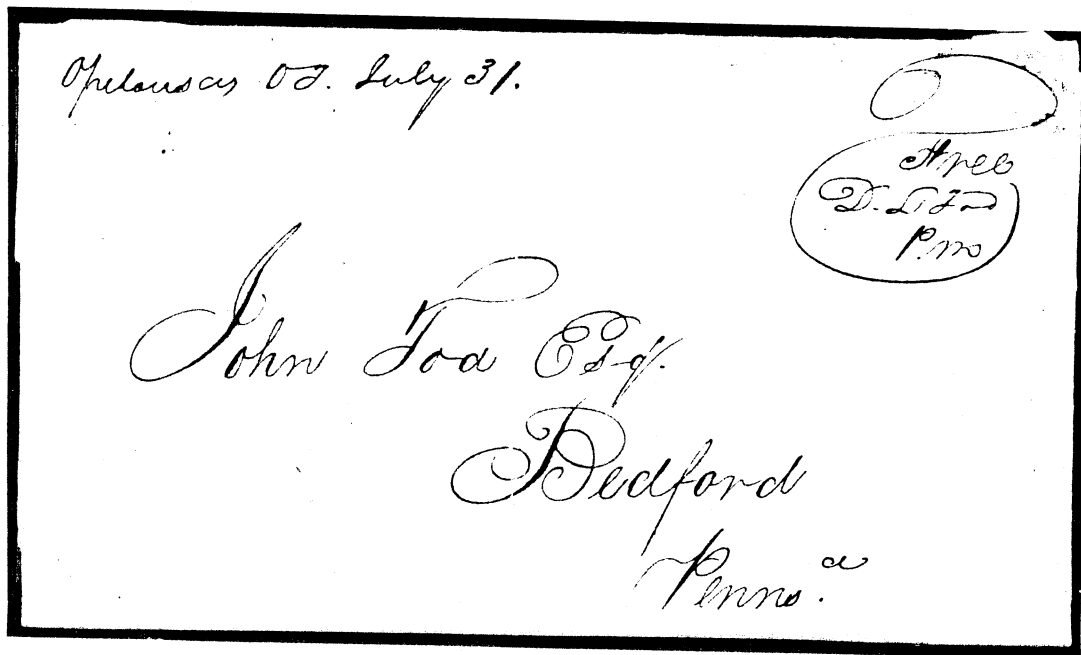 Opelousas OT. July 31.
Free
D. L Tod
P.m
John Tod Esq.
Bedford
Penns.a